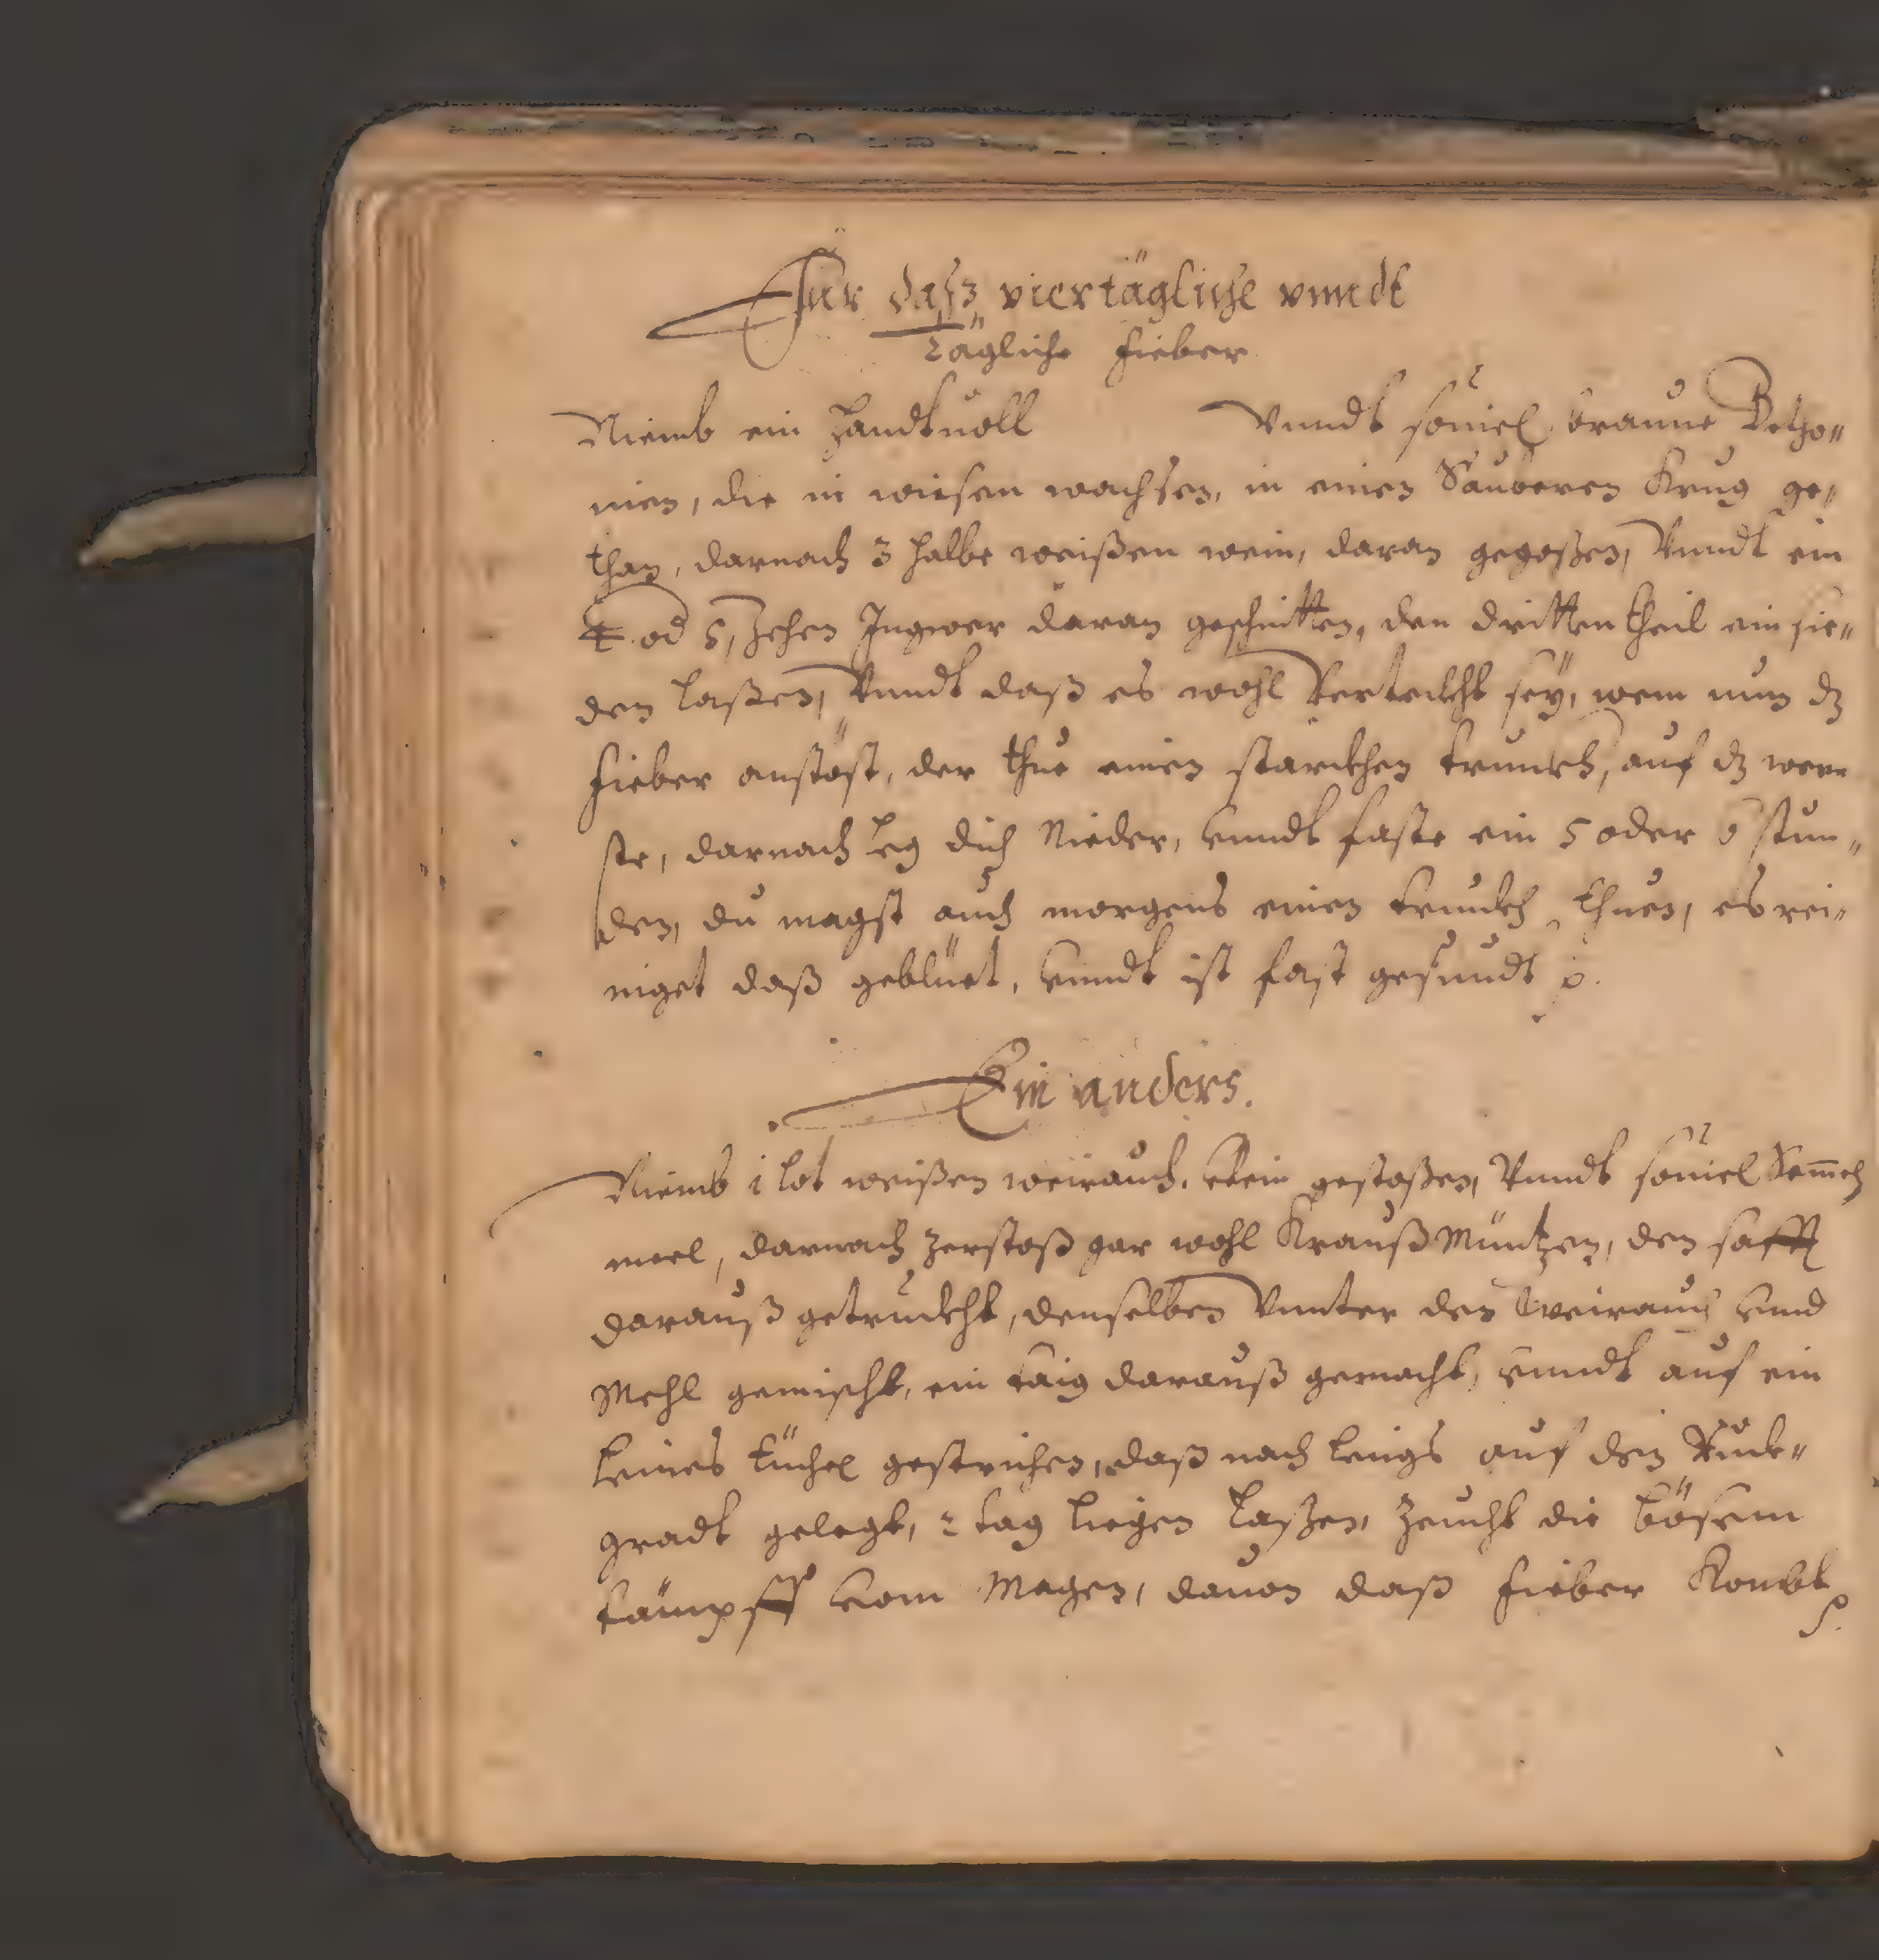 Für daß viertägliche vnndt
tägliche fieber
Niemb ein handtuoll Vnndt souiel braune Betho„
nien, die in wiesen wachsen, in einen Sauberen Krug ge„
than, darnach 3 halbe weißen wein, daran gegoßen, Vnndt ein
4 od 5, Zehen Ingwer daran geschnitten, den dritten theil ein sie„
den laßen, Vnndt daß es wohl Verteckht seÿ, wem nun dz
fieber anstöst, der thue einen starckhen trunckh, auf dz wer„
ste, darnach leg dich Nieder, vnndt faste ein 5 oder 6 stun„
den, du magst auch morgens einen trunckh thuen, es rei„
niget daß geblüet, vnndt ist fast gesundt p.
Ein anders.
Niemb 1 lot weißen weirauch, klein gestoßen, Vnndt souiel Sem̄el
meel, darnach zerstoß gar wohl Krauß Müntzen, den safft
darauß getruckht, denselben Vnnter den Weirauch vnnd
Mehl gemischt, ein taig darauß gemacht, vnndt auf ein
leines tüchel gestrichen, daß nach lengs auf den Ruck„
gradt gelegt, 2 tag liegen laßen, zeucht die bösenn
tämpff vom Magen, dauon daß fieber Kombt p.